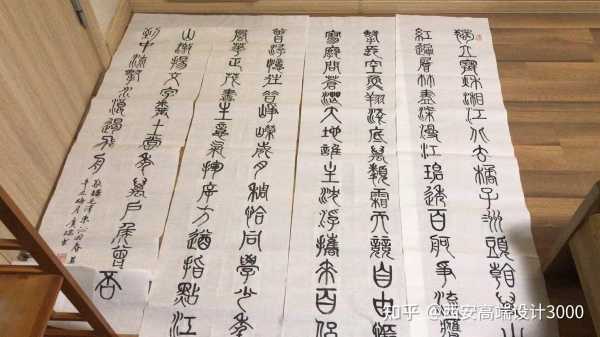 獨立寒秋湘江北去橘子洲頭看萬山
紅遍層林盡染漫江碧透百舸爭流鷹
擊長空魚翔淺底萬類霜天競自由悵
寥廓問蒼茫大地誰主沈浮攜來百侶
曾游憶往昔崢嶸歲月稠恰同學少年
風華正茂書生意氣揮斥方遒指點江
山激揚文字糞土當年萬戶侯曾記否
到中流擊水浪遏飛舟
知乎 @西安高端设计3000